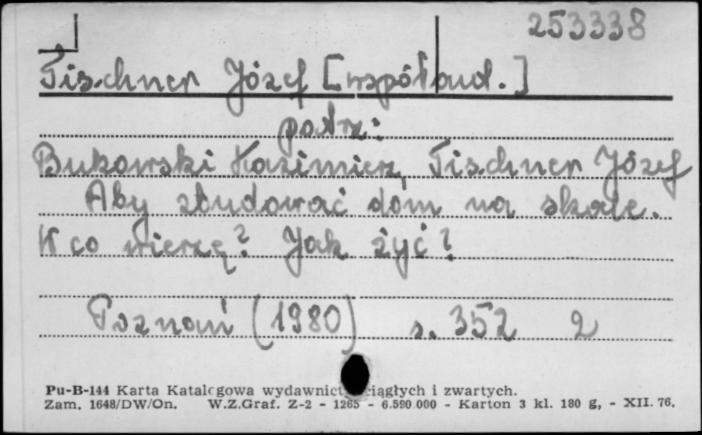 253338
Tischner Józef [współaut.]
patrz:
Bukowski Kazimierz, Tischner Józef
Aby zbudować dom na skale.
W co wierzę? Jak żyć?
Poznań (1980) s. 352 2
Pu-B-144 Karta Katalogowa wydawnictw ciągłych i zwartych.
Zam. 1648/DW/On. W.Z.Graf. Z-2 - 1265 - 6.590 000 - Karton 3 kl. 180 g, - XII. 76.